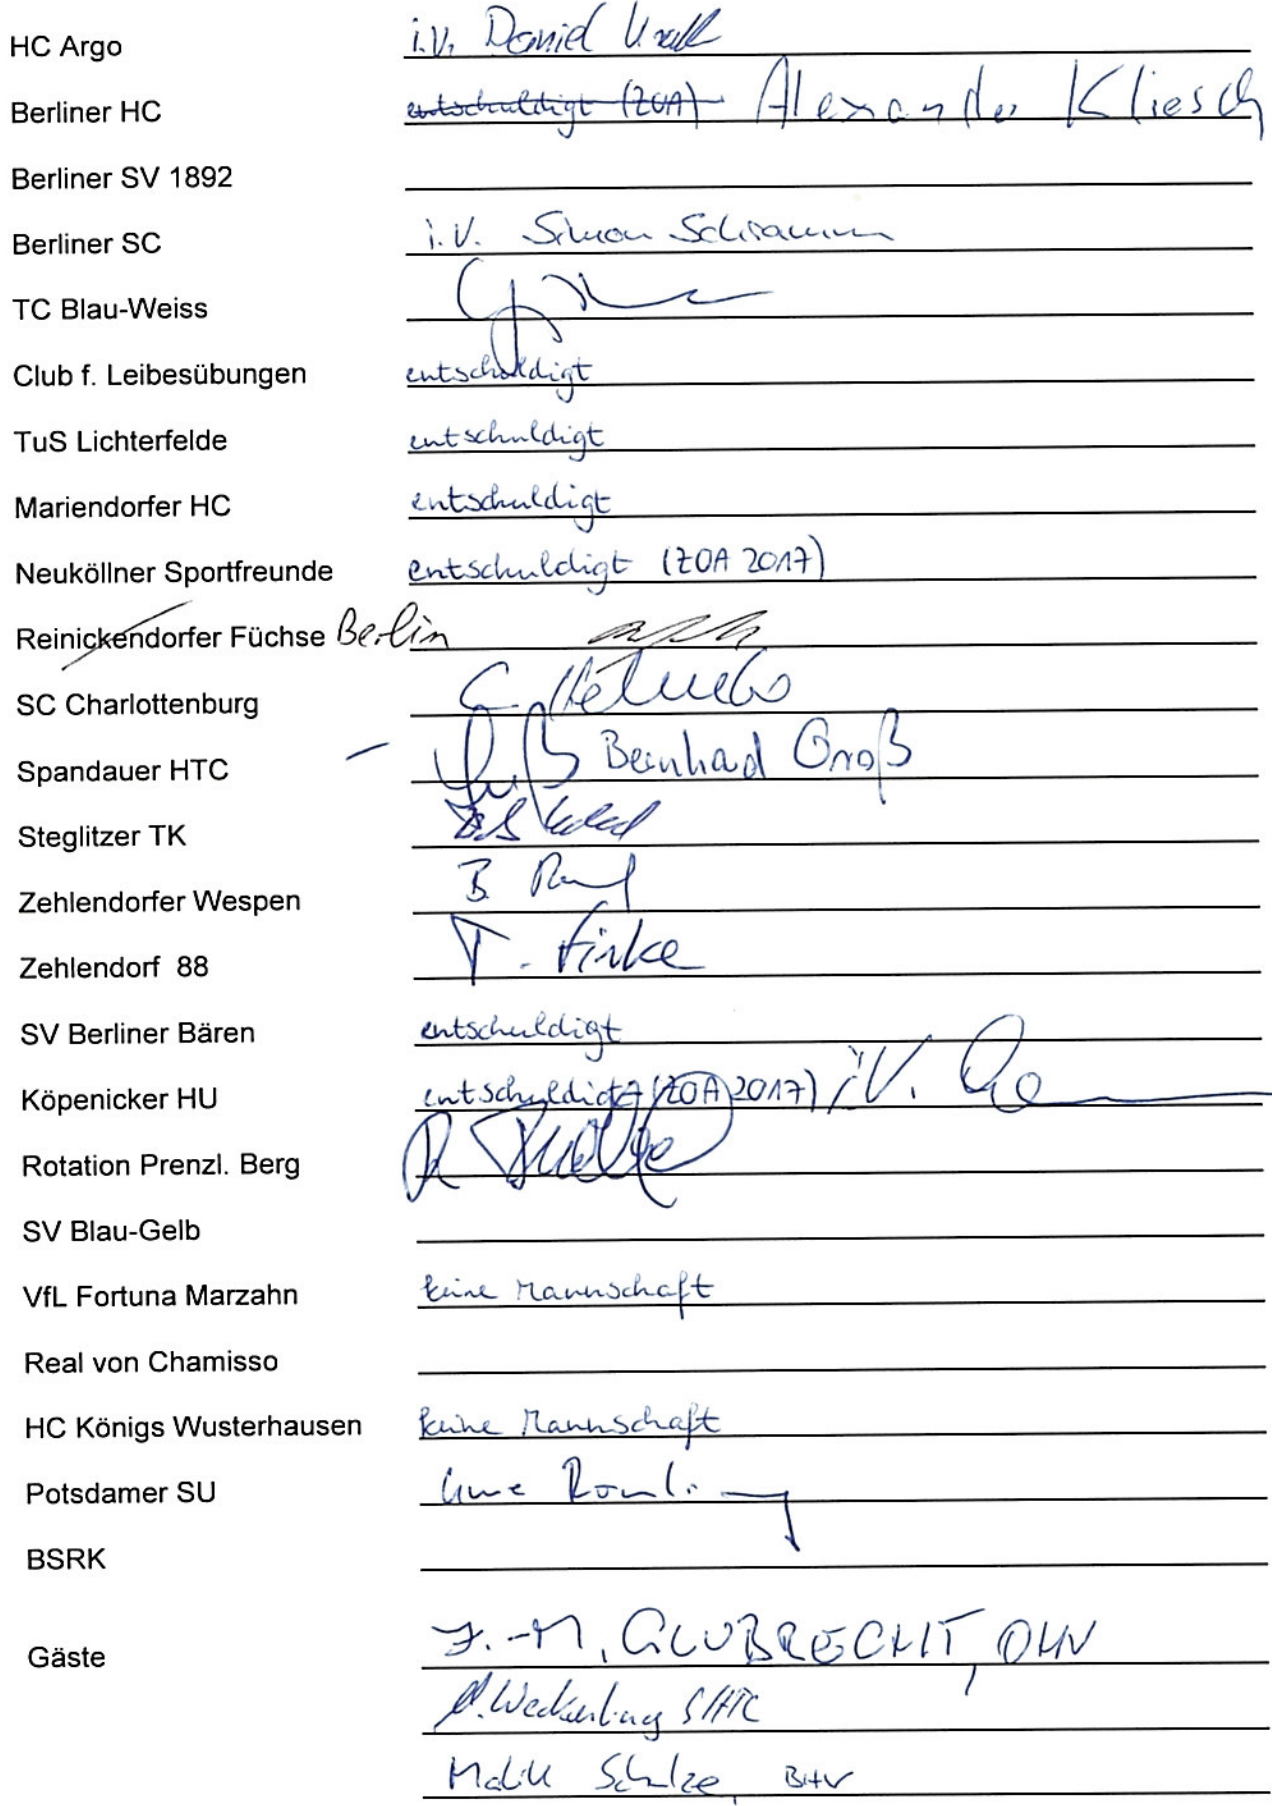 HC Argo i.V. Daniel
Berliner HC entschuldigt (ZOA) Alexander Kliesch
Berliner SV 1892
Berliner SC i.V. Simon Schramm
TC Blau-Weiss
Club f. Leibesübungen entschuldigt
TuS Lichterfelde entschuldigt
Mariendorfer HC entschuldigt
Neuköllner Sportfreunde entschuldigt (ZOA 2017)
Reinickendorfer Füchse Berlin
SC Charlottenburg C.
Spandauer HTC Bernhard Groß
Steglitzer TK
Zehlendorfer Wespen B.
Zehlendorf 88 T. Finke
SV Berliner Bären entschuldigt
Köpenicker HU entschuldigt (ZOA 2017) i.V.
Rotation Prenzl. Berg
SV Blau-Gelb
VfL Fortuna Marzahn keine Mannschaft
Real von Chamisso
HC Königs Wusterhausen keine Mannschaft
Potsdamer SU Uwe
BSRK
Gäste J.-M. GLUBRECHT, OHV
SHTC
Malik Schulze, BHV